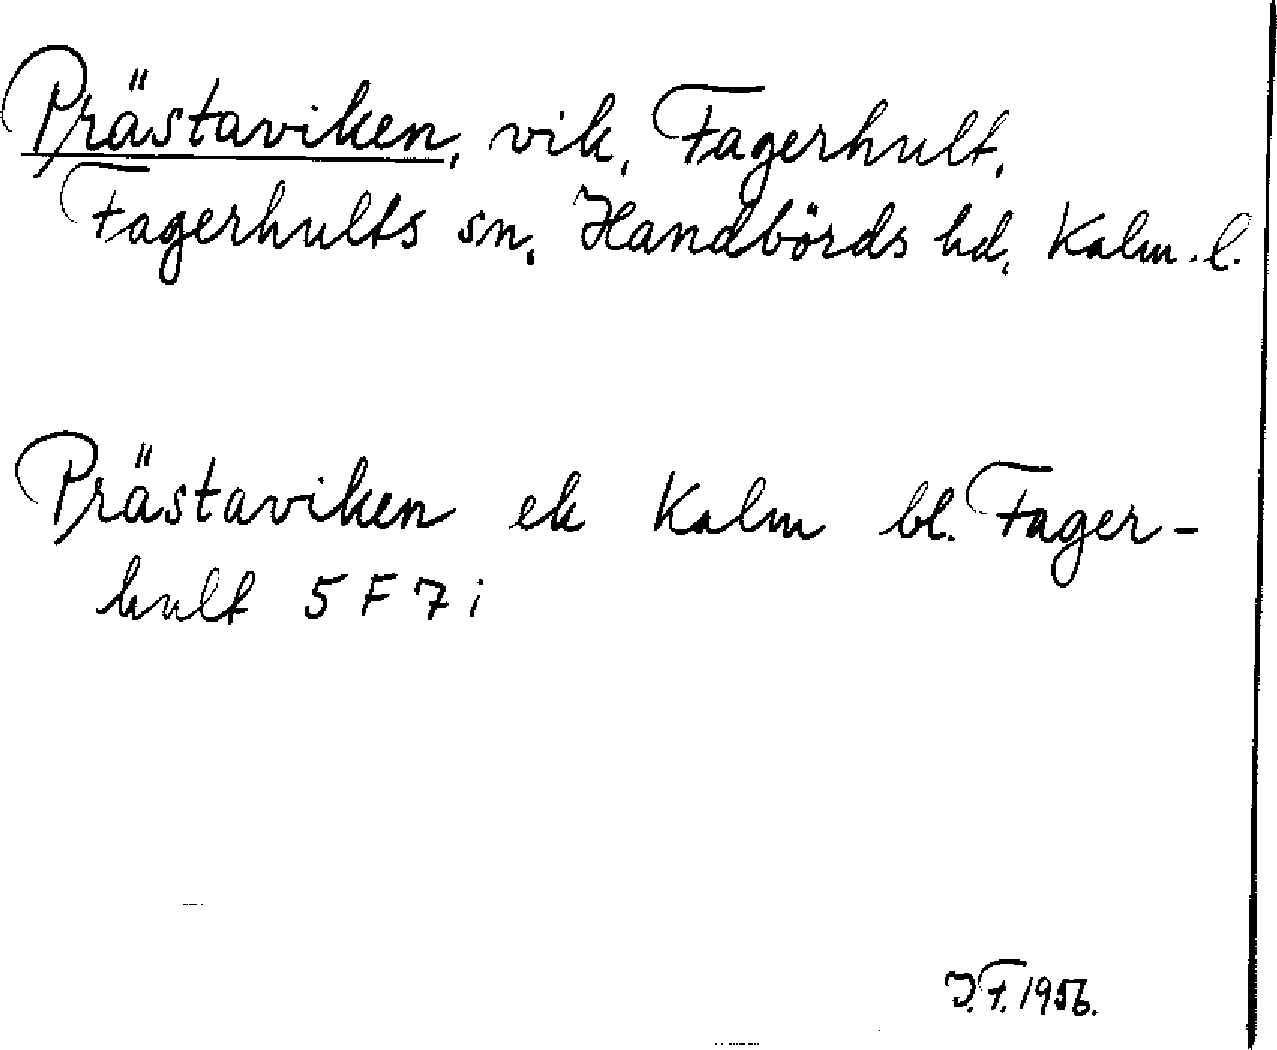 Prästaviken, vik, Fagerhult,
Fagerhults sn, Handbörds hd, Kalm. l.
Prästaviken ek Kalm bl. Fager-
hult 5 F 7 i
J.F. 1956.